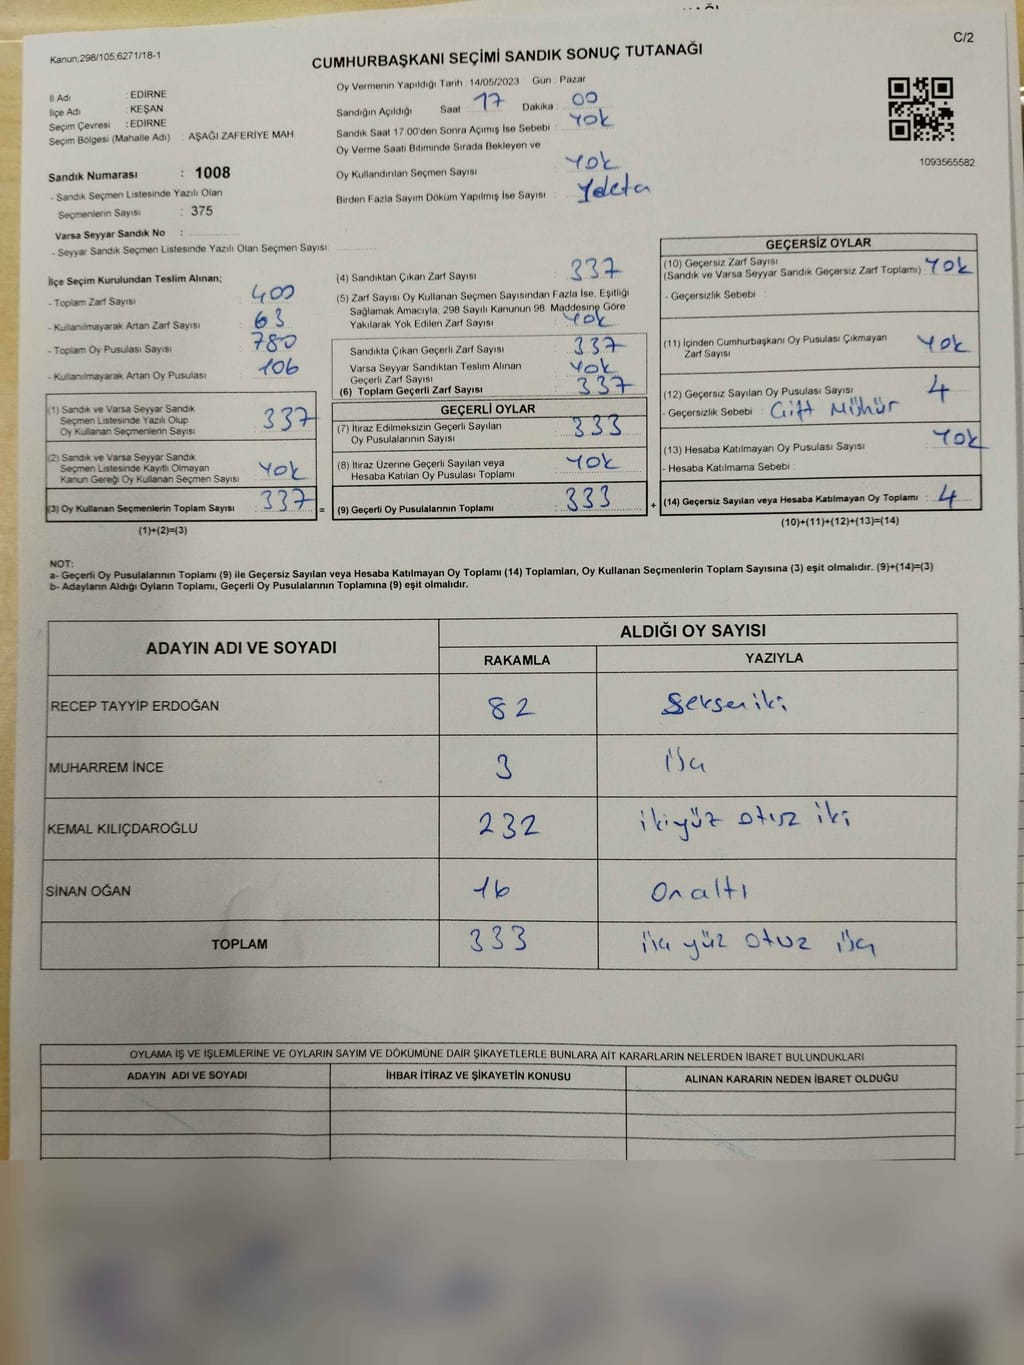 C/2
Kanun,298/105,6271/18-1
CUMHURBAŞKANI SEÇİMİ SANDIK SONUÇ TUTANAĞI
İl Adı : EDİRNE
İlçe Adı : KEŞAN
Seçim Çevresi : EDİRNE
Seçim Bölgesi (Mahalle Adı) : AŞAĞI ZAFERİYE MAH.
Sandık Numarası : 1008
- Sandık Seçmen Listesinde Yazılı Olan
Seçmenlerin Sayısı : 375
Varsa Seyyar Sandık No :
- Seyyar Sandık Seçmen Listesinde Yazılı Olan Seçmen Sayısı:
Oy Vermenin Yapıldığı Tarih : 14/05/2023 Gün : Pazar
Sandığın Açıldığı Saat : 17 Dakika : 00
Sandık Saat 17:00'den Sonra Açılmış İse Sebebi : Yok
Oy Verme Saati Bitiminde Sırada Bekleyen ve
Oy Kullandırılan Seçmen Sayısı : Yok
Birden Fazla Sayım Döküm Yapılmış İse Sayısı :
1093565582
İlçe Seçim Kurulundan Teslim Alınan;
- Toplam Zarf Sayısı : 400
- Kullanılmayarak Artan Zarf Sayısı : 63
- Toplam Oy Pusulası Sayısı : 780
- Kullanılmayarak Artan Oy Pusulası : 106
(1) Sandık ve Varsa Seyyar Sandık
Seçmen Listesinde Yazılı Olup
Oy Kullanan Seçmenlerin Sayısı : 337
(2) Sandık ve Varsa Seyyar Sandık
Seçmen Listesinde Kayıtlı Olmayan
Kanun Gereği Oy Kullanan Seçmen Sayısı : Yok
(3) Oy Kullanan Seçmenlerin Toplam Sayısı : 337 =
(1)+(2)=(3)
(4) Sandıktan Çıkan Zarf Sayısı : 337
(5) Zarf Sayısı Oy Kullanan Seçmen Sayısından Fazla İse, Eşitliği
Sağlamak Amacıyla, 298 Sayılı Kanunun 98. Maddesine Göre
Yakılarak Yok Edilen Zarf Sayısı : Yok
Sandıkta Çıkan Geçerli Zarf Sayısı : 337
Varsa Seyyar Sandıktan Teslim Alınan
Geçerli Zarf Sayısı : Yok
(6) Toplam Geçerli Zarf Sayısı : 337
GEÇERLİ OYLAR
(7) İtiraz Edilmeksizin Geçerli Sayılan
Oy Pusulalarının Sayısı : 333
(8) İtiraz Üzerine Geçerli Sayılan veya
Hesaba Katılan Oy Pusulası Toplamı : Yok
(9) Geçerli Oy Pusulalarının Toplamı : 333 +
GEÇERSİZ OYLAR
(10) Geçersiz Zarf Sayısı
(Sandık ve Varsa Seyyar Sandık Geçersiz Zarf Toplamı) : Yok
- Geçersizlik Sebebi :
(11) İçinden Cumhurbaşkanı Oy Pusulası Çıkmayan
Zarf Sayısı : Yok
(12) Geçersiz Sayılan Oy Pusulası Sayısı : 4
- Geçersizlik Sebebi : Çift Mühür
(13) Hesaba Katılmayan Oy Pusulası Sayısı : Yok
- Hesaba Katılmama Sebebi :
(14) Geçersiz Sayılan veya Hesaba Katılmayan Oy Toplamı : 4
(10)+(11)+(12)+(13)=(14)
NOT:
a- Geçerli Oy Pusulalarının Toplamı (9) ile Geçersiz Sayılan veya Hesaba Katılmayan Oy Toplamı (14) Toplamları, Oy Kullanan Seçmenlerin Toplam Sayısına (3) eşit olmalıdır. (9)+(14)=(3)
b- Adayların Aldığı Oyların Toplamı, Geçerli Oy Pusulalarının Toplamına (9) eşit olmalıdır.
ADAYIN ADI VE SOYADI ALDIĞI OY SAYISI
RAKAMLA YAZIYLA
RECEP TAYYİP ERDOĞAN 82 Seksen iki
MUHARREM İNCE 3
KEMAL KILIÇDAROĞLU 232 ikiyüz otuz iki
SİNAN OĞAN 16 On altı
TOPLAM 333 yüz otuz
OYLAMA İŞ VE İŞLEMLERİNE VE OYLARIN SAYIM VE DÖKÜMÜNE DAİR ŞİKAYETLERLE BUNLARA AİT KARARLARIN NELERDEN İBARET BULUNDUKLARI
ADAYIN ADI VE SOYADI İHBAR İTİRAZ VE ŞİKAYETİN KONUSU ALINAN KARARIN NEDEN İBARET OLDUĞU